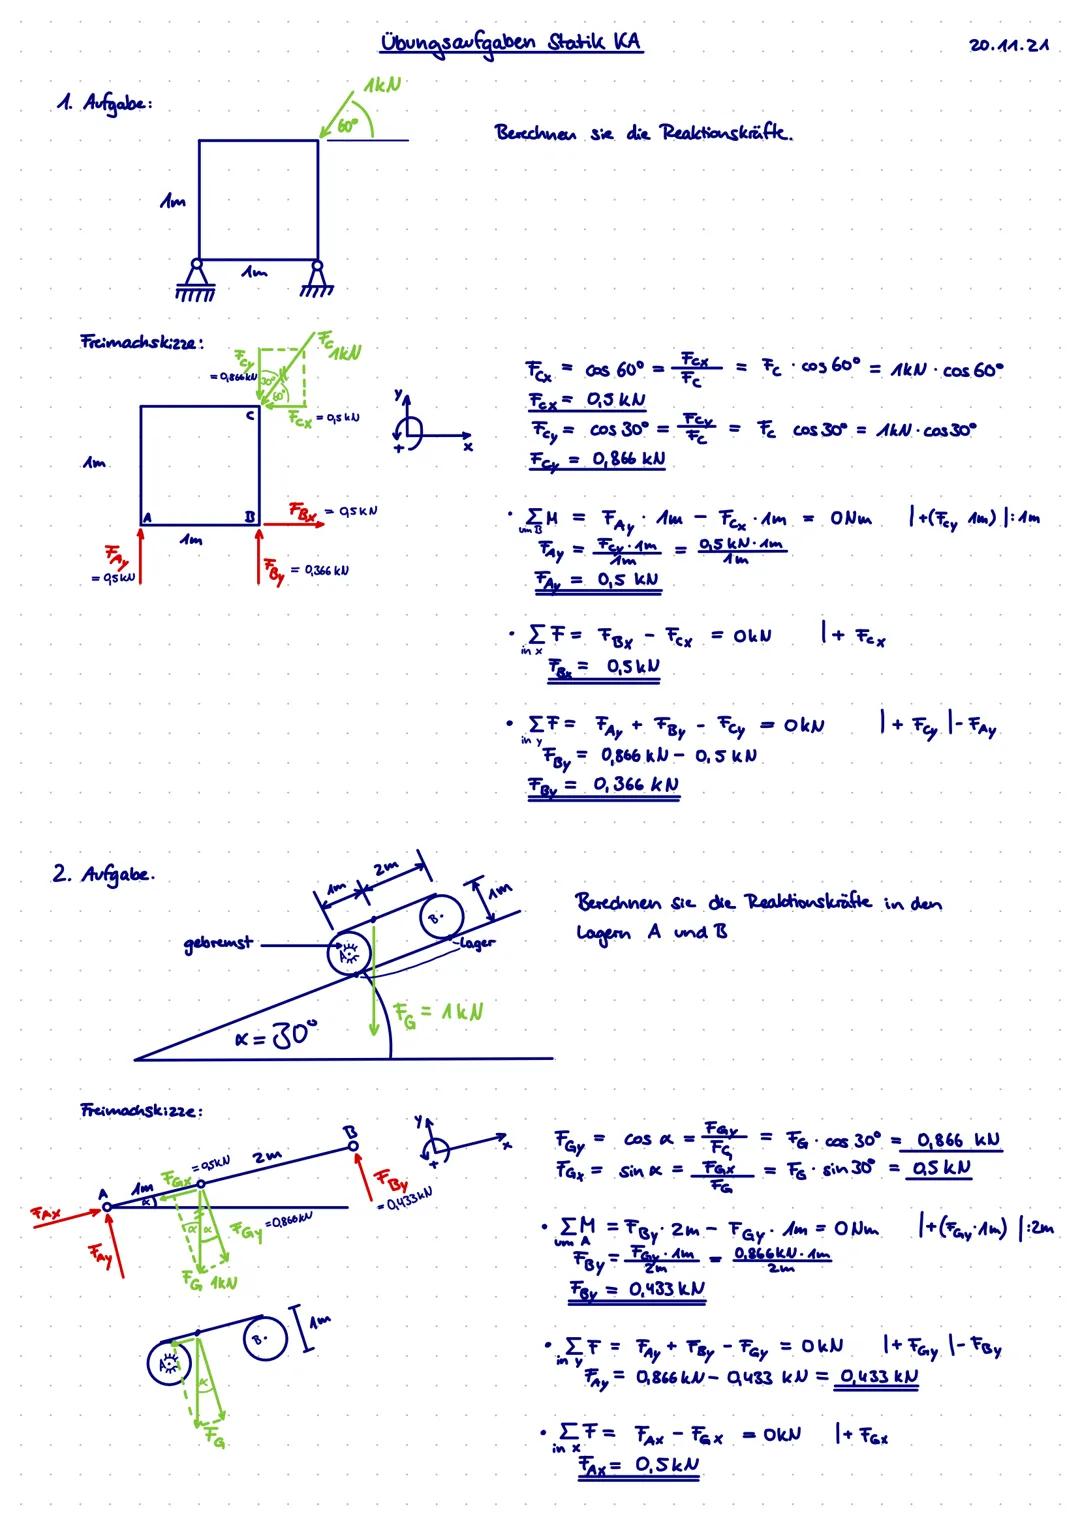 Übungsaufgaben Statik KA
20.11.21
1. Aufgabe:
1kN
60°
Berechnen sie die Reaktionskräfte.
1m
1m
Freimachskizze:
F_Cy = 0,866kN
F_C 1kN
30°
60°
F_Cx = 0,5kN
C
1m
A
B
1m
F_Ay = 0,5kN
F_Bx = 0,5kN
F_By = 0,366kN
y
x
+
F_Cx = cos 60° = F_Cx/F_C = F_C · cos 60° = 1kN · cos 60°
F_Cx = 0,5 kN
F_Cy = cos 30° = F_Cy/F_C = F_C cos 30° = 1kN · cos 30°
F_Cy = 0,866 kN
· ΣM um B = F_Ay · 1m - F_Cx · 1m = 0Nm |+(F_Cy 1m) |:1m
F_Ay = F_Cy · 1m/1m = 0,5 kN · 1m/1m
F_Ay = 0,5 kN
· ΣF in x = F_Bx - F_Cx = 0kN |+ F_Cx
F_Bx = 0,5 kN
· ΣF in y = F_Ay + F_By - F_Cy = 0kN |+ F_Cy |- F_Ay
F_By = 0,866 kN - 0,5 kN
F_By = 0,366 kN
2. Aufgabe.
1m
2m
1m
gebremst
A
B
Lager
F_G = 1kN
α = 30°
Berechnen sie die Reaktionskräfte in den
Lagern A und B
Freimachskizze:
A
1m
2m
B
α
F_Ax
F_Ay
F_Gx = 0,5kN
F_Gy = 0,866kN
α
α
F_G 1kN
F_By = 0,433kN
y
x
+
F_Gy = cos α = F_Gy/F_G = F_G · cos 30° = 0,866 kN
F_Gx = sin α = F_Gx/F_G = F_G · sin 30° = 0,5 kN
· ΣM um A = F_By · 2m - F_Gy · 1m = 0Nm |+(F_Gy · 1m) |:2m
F_By = F_Gy · 1m/2m = 0,866kN · 1m/2m
F_By = 0,433 kN
A
B
1m
α
F_G
· ΣF in y = F_Ay + F_By - F_Gy = 0kN |+ F_Gy |- F_By
F_Ay = 0,866 kN - 0,433 kN = 0,433 kN
· ΣF in x = F_Ax - F_Gx = 0kN |+ F_Gx
F_Ax = 0,5 kN